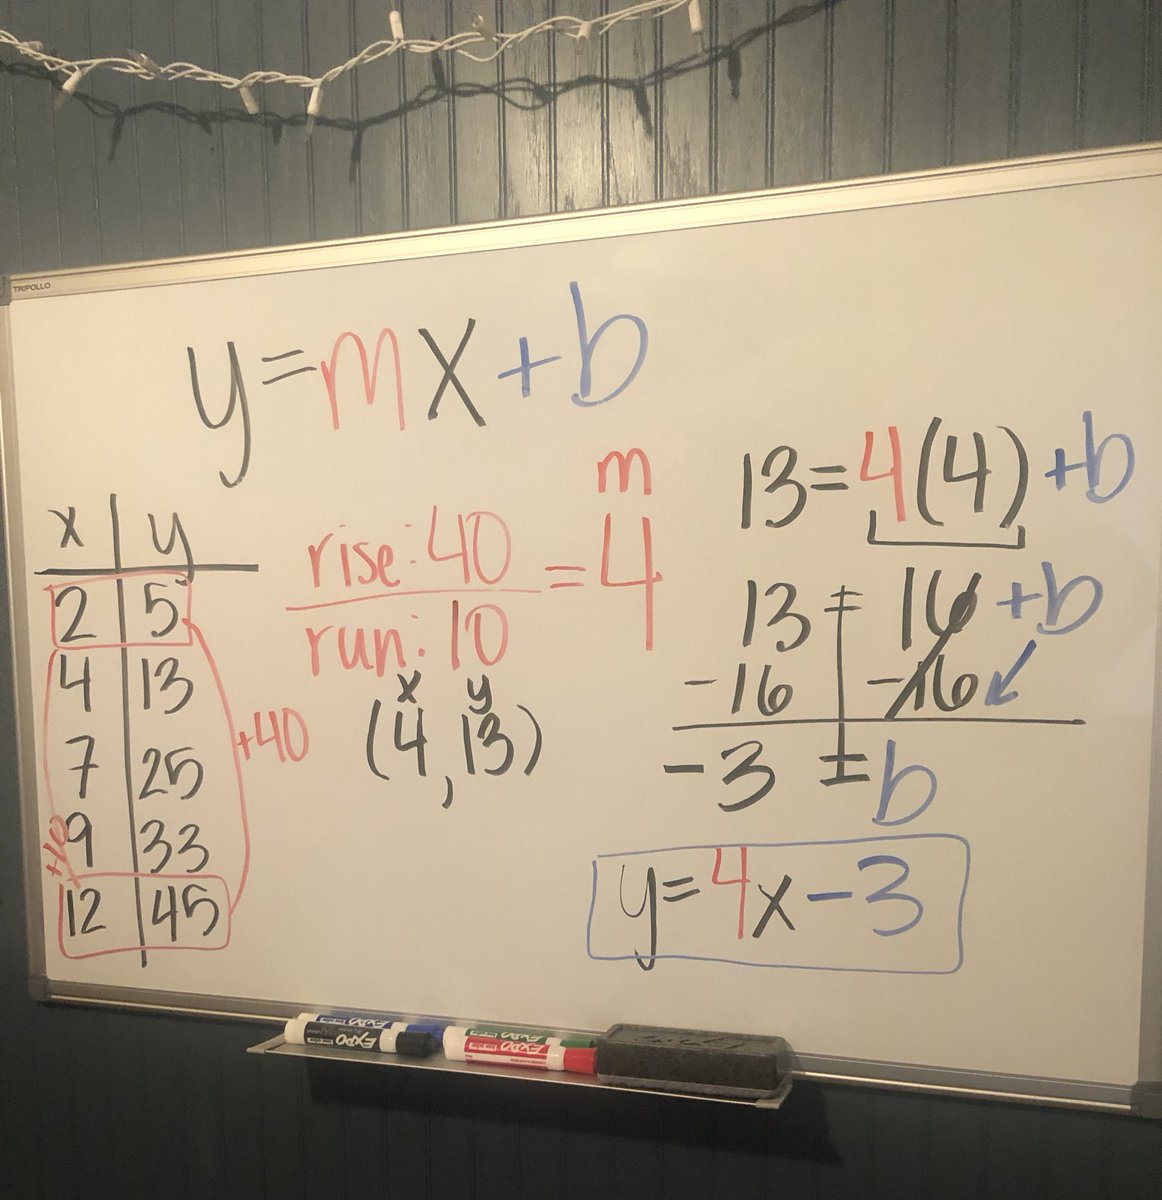 TRIPOLLO
y=mx+b
x y
2 5
4 13
7 25
9 33
12 45
+10
+40
m
rise: 40
run: 10
=4
x y
(4, 13)
13=4(4)+b
13=16+b
-16 -16
-3 = b
y=4x-3
EXPO
EXPO
EXPO
EXPO